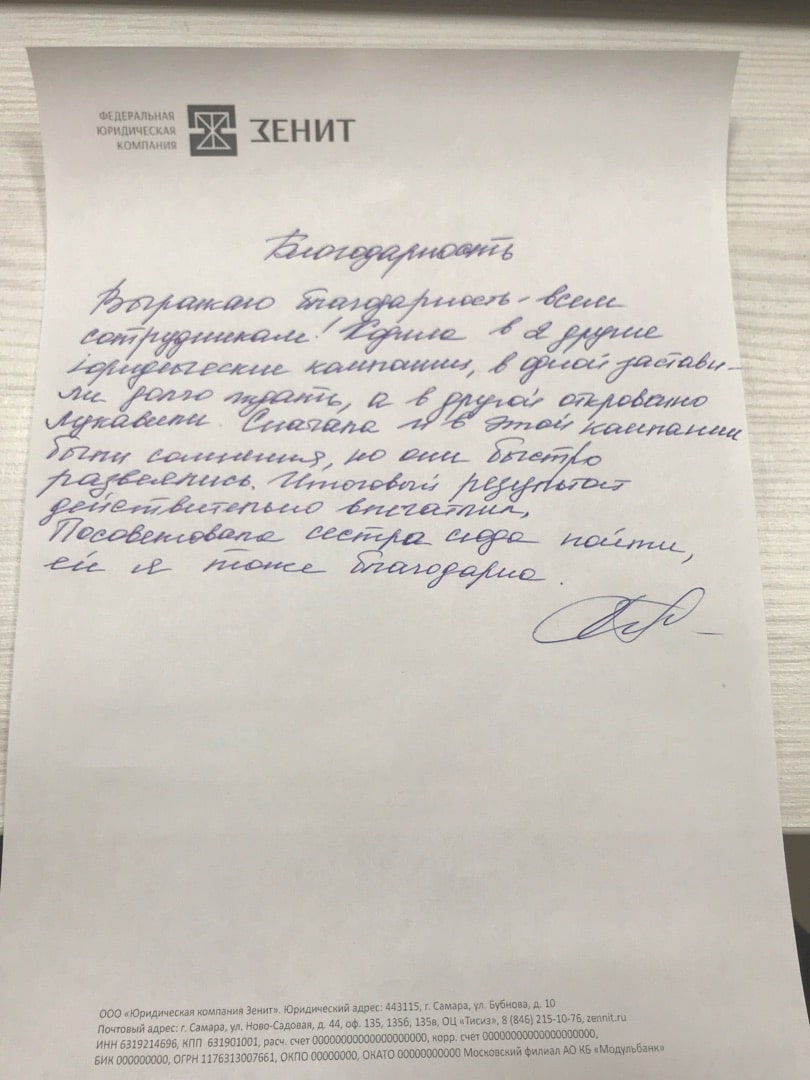 ФЕДЕРАЛЬНАЯ
ЮРИДИЧЕСКАЯ
КОМПАНИЯ
ЗЕНИТ
Благодарность
Выражаю благодарность всем
сотрудникам! Ходила в 2 другие
юридические компании, в одной застави-
ли долго ждать, а в другой откровенно
лукавили. Сначала и в этой компании
были сомнения, но они быстро
развеялись. Итоговый результат
действительно впечатлил,
Посоветовала сестра сюда пойти,
ей я тоже благодарна.
ООО «Юридическая компания Зенит». Юридический адрес: 443115, г. Самара, ул. Бубнова, д. 10
Почтовый адрес: г. Самара, ул. Ново-Садовая, д. 44, оф. 135, 135б, 135в, ОЦ «Тисиз», 8 (846) 215-10-76, zennit.ru
ИНН 6319214696, КПП 631901001, расч. счет 00000000000000000000, корр. счет 00000000000000000000,
БИК 000000000, ОГРН 1176313007661, ОКПО 00000000, ОКАТО 00000000000 Московский филиал АО КБ «Модульбанк»